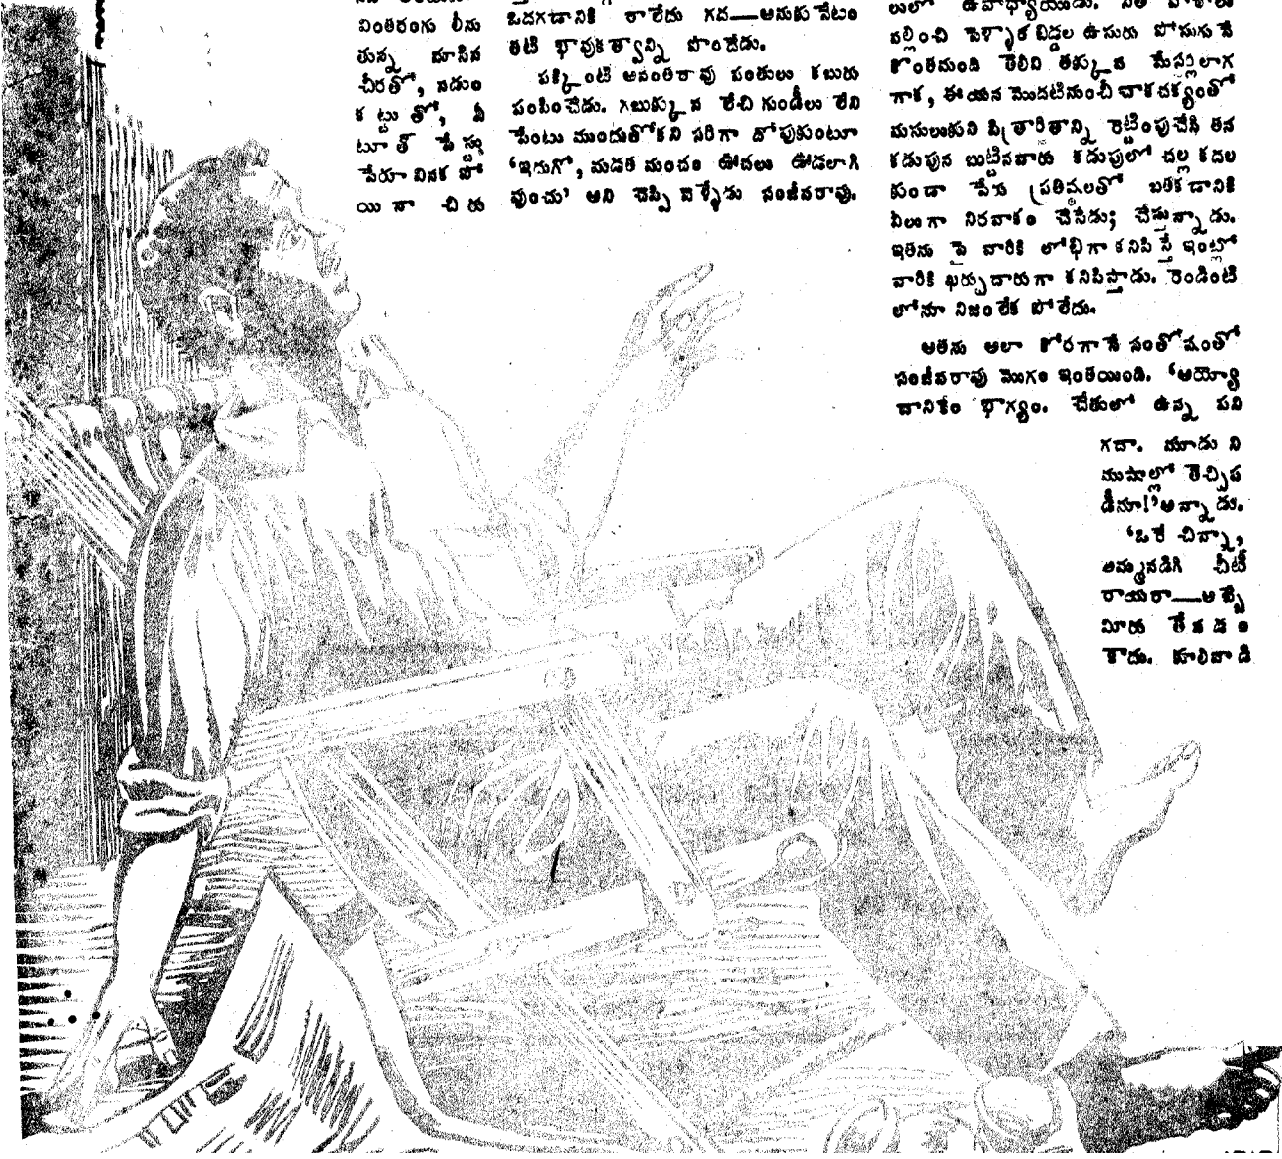 వింతరంగు లీను
తున్న మాసిన
చీరతో, నడుం
కట్టుతో, వీ
టూతో పేస్టు
పేరూ వినక పో
యినా చిరు
ఒదగడానికి రాలేదు గద—అనుకునేటం
తటి భావుకత్వాన్ని పొందేడు.
పక్కింటి అనంతరావు పంతులు కబురు
పంపించేడు. గబుక్కున లేచి గుండీలు లేని
పేంటు ముందుతోకని సరిగా దోపుకుంటూ
'ఇదుగో, మడత మంచం ఊచలు ఊడలాగి
వుంచు' అని చెప్పి వెళ్ళేడు సంజీవరావు.
లులో ఉపాధ్యాయుడు.
వల్లించి పెళ్ళాం బిడ్డల ఉసురు పోసుగునే
కొంతమంది తెలివి తక్కువ మేస్టర్లలాగ
గాక, ఈయన మొదటినుంచీ చాకచక్యంతో
మసులుకుని పిత్రార్జితాన్ని రెట్టింపుచేసి తన
కడుపున బుట్టినవారు కడుపులో చల్ల కదల
కుండా పేరు ప్రతిష్ఠలతో బతకడానికి
వీలుగా నిరవాకం చేసేడు; చేస్తున్నాడు.
ఇతను పై వారికి లోభిగా కనిపిస్తే ఇంట్లో
వారికి ఖర్చుదారుగా కనిపిస్తాడు. రెండింటి
లోనూ నిజం లేక పోలేదు.
అతను అలా కోరగానే సంతోషంతో
సంజీవరావు మొగం ఇంతయింది. 'అయ్యో
దానికేం భాగ్యం. చేతులో ఉన్న పని
గదా. మూడు ని
ముషాల్లో తెచ్చిప
డేనూ!' అన్నాడు.
'ఒరే చిన్నా,
అమ్మనడిగి చీటీ
రాయరా—అబ్బే
మీరు తేవడం
కాదు. కూలివాడి